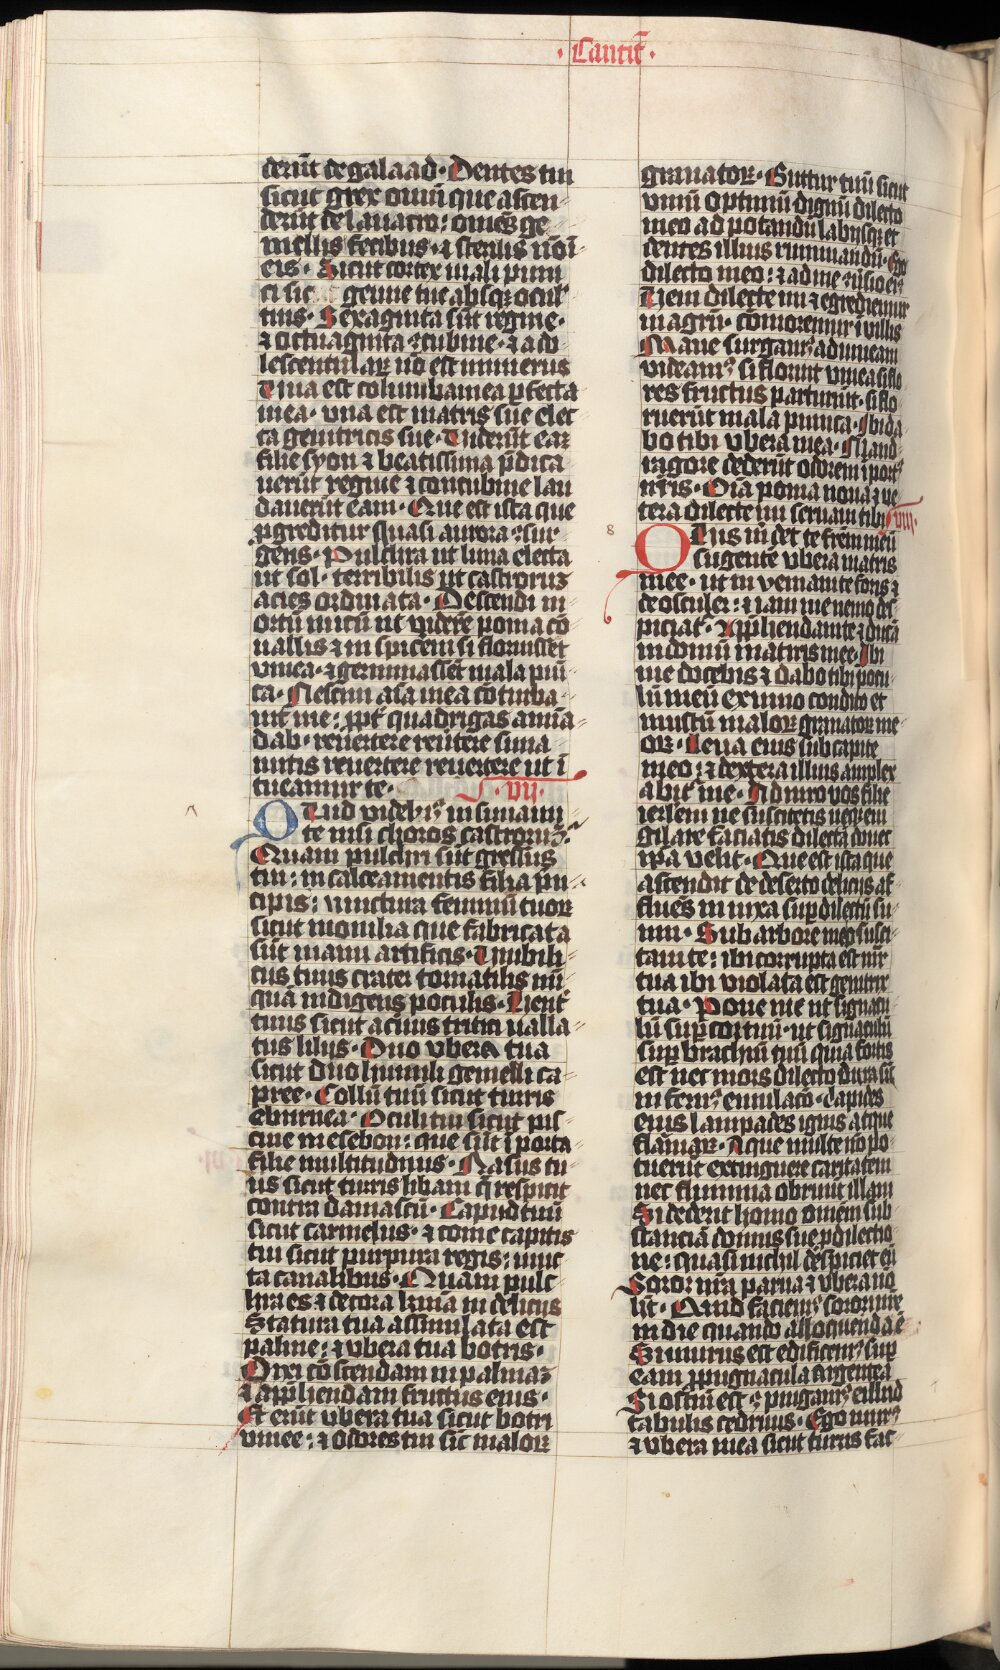 · Cantic̄ ·
derūt de galaad · Dentes tui
sicut grex ouiū que ascen-
derūt de lauacro: om̄s ge
mellis fetibus · ⁊ sterilis nō ī
eis · Sicut cortex mali puni
ci sic gene tue absqꝫ ocul̄
tuis · Sexaginta sūt regine ·
⁊ octuaginta ꝯcubine · ⁊ ado
lescentularꝝ nō est numerus
Una est columba mea ꝑfecta
mea · vna est matris sue elec
ta genitricis sue · Uiderūt eā
filie syon ⁊ beatissimā p̄dica
uerūt regine ⁊ concubine lau
dauerūt eam · Que est ista que
ꝓgreditur quasi aurora ꝯsur
gens · Pulchra ut luna electa
ut sol · terribilis ut castrorus
acies ordinata · Descendi in
ortū meū ut viderē poma cō
uallis ⁊ inspicerē si floruisset
vinea · ⁊ germinassēt mala pu
ca · Nesciui aīa mea cōturba
uit me: ꝓpt̄ quadrigas amīa-
dab · reuertere reuertere suna
mitis reuertere reuertere ut ī
tueamur te · vij ·
Quid videbis in sunami
te nisi choros castrorum
Quam pulchri sūt gressus
tui: in calceamentis filia pri
cipis: iunctura feminū tuoꝝ
sicut monilia que fabricata
sūt manu artificis · Umbili
cus tuus crater tornatilis nū
quā indigens poculis · Uent̄
tuus sicut aceruus tritici ualla-
tus lilijs · Duo vbera tua
sicut duo hinnuli gemelli ca-
pree · Collū tuū sicut turris
eburnea · Oculi tui sicut pis
cine in esebon: que sūt ī porta
filie multitudinis · Nasus tu
us sicut turris libani q̄ respicit
contra damascū · Caput tuū
sicut carmelus · ⁊ come capitis
tui sicut purpura regis: iunc
ta canalibus · Quam pulc
hra es ⁊ decora kr̄ma in delicijs
Statura tua assimilata est
palme: ⁊ vbera tua botris ·
Dixi cōscendam in palmaꝫ
⁊ appr̄hendam fructus eius ·
Et erūt vbera tua sicut botri
vinee: ⁊ odores tui sic maloꝝ
granatoꝝ · Guttur tuū sicut
vinū optimū dignū dilecto
meo ad potandū labijsqꝫ et
dentes illius ruminandū · Ego
dilecto meo: ⁊ ad me ꝯuersio eiꝰ
Ueni dilecte mi ⁊ egrediemur
in agrū · cōmoremur ī villis
Mane surgamꝰ ad uineam
videamꝰ si floruit vinea si flo
res fructus parturiūt · si flo
ruerūt mala punica · Ibi da
bo tibi vbera mea · Mand
ragore dederūt odorem ī port̄
nr̄is · Oīa poma noua ⁊ ve
tera dilecte mi seruaui tibi · viij ·
8
Quis m̄ det te frēm meū
sugentē vbera matris
mee · ut inueniam te foris ⁊
deosculer: ⁊ iam me nemo des
piciat · Appr̄hendam te ⁊ ducā
in domū matris mee · Ibi
me docebis ⁊ dabo tibi pocu
lū meū ex uino condito et
mustū maloꝝ granatoꝝ me-
oꝝ · Leua eius sub capite
meo: ⁊ dextera illius amplex
abit̄ me · Adiuro vos filie
ierl̄em ne suscitetis neqꝫ eui
gilare faciatis dilectā donec
ip̄a velit · Que est ista que
ascendit de deserto delicijs af
fluēs innixa sup dilectū su
um · Sub arbore malo susci
taui te: ibi corrupta est mr̄
tua ibi violata est genitrix
tua · Pone me ut signacu
lū sup cor tuū · ut signaculū
sup brachiū tuū quia fortis
est ut mors dilectio dura sic̄
infernꝰ emulacō · Lapides
eius lampades ignis atque
flāmarꝝ · Aque multe nō po
tuerūt extinguere caritatem
nec flumina obruūt illam
Si dederit homo omēm sub
stanciā domus sue ꝓ dilectio
ne: quasi nichil despiciet eū
Soror nr̄a parua ⁊ vbera nō
h̄t · Quid faciemꝰ sorori nr̄e
in die quando alloquenda ē
Si murus est edificemꝰ sup
eam ꝓpugnacula argentea
Si ostiū est ꝯpingamꝰ ⁊ illud
tabulis cedrinis · Ego murꝰ
⁊ vbera mea sicut turris fac